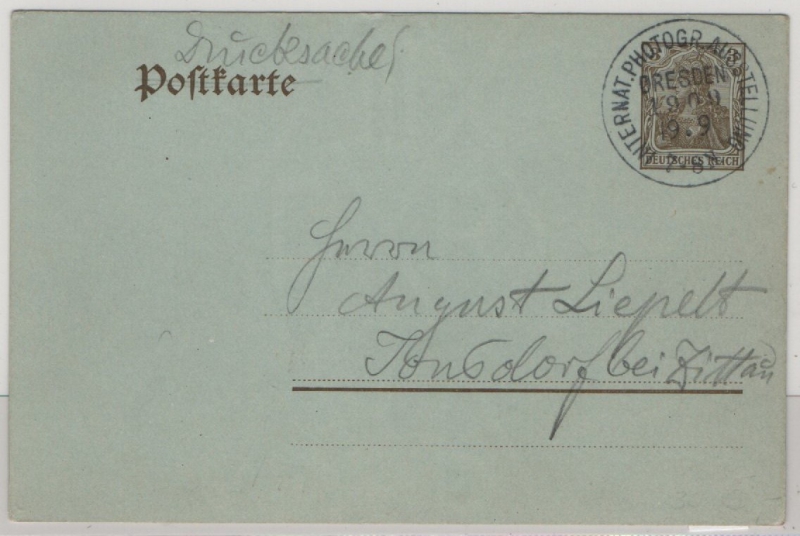 Drucksache!
Postkarte
INTERNAT. PHOTOGR. AUSSTELLUNG
DRESDEN
1909
19.9
7-8V
DEUTSCHES REICH
Herrn
August Liepelt
Jonsdorf bei Zittau